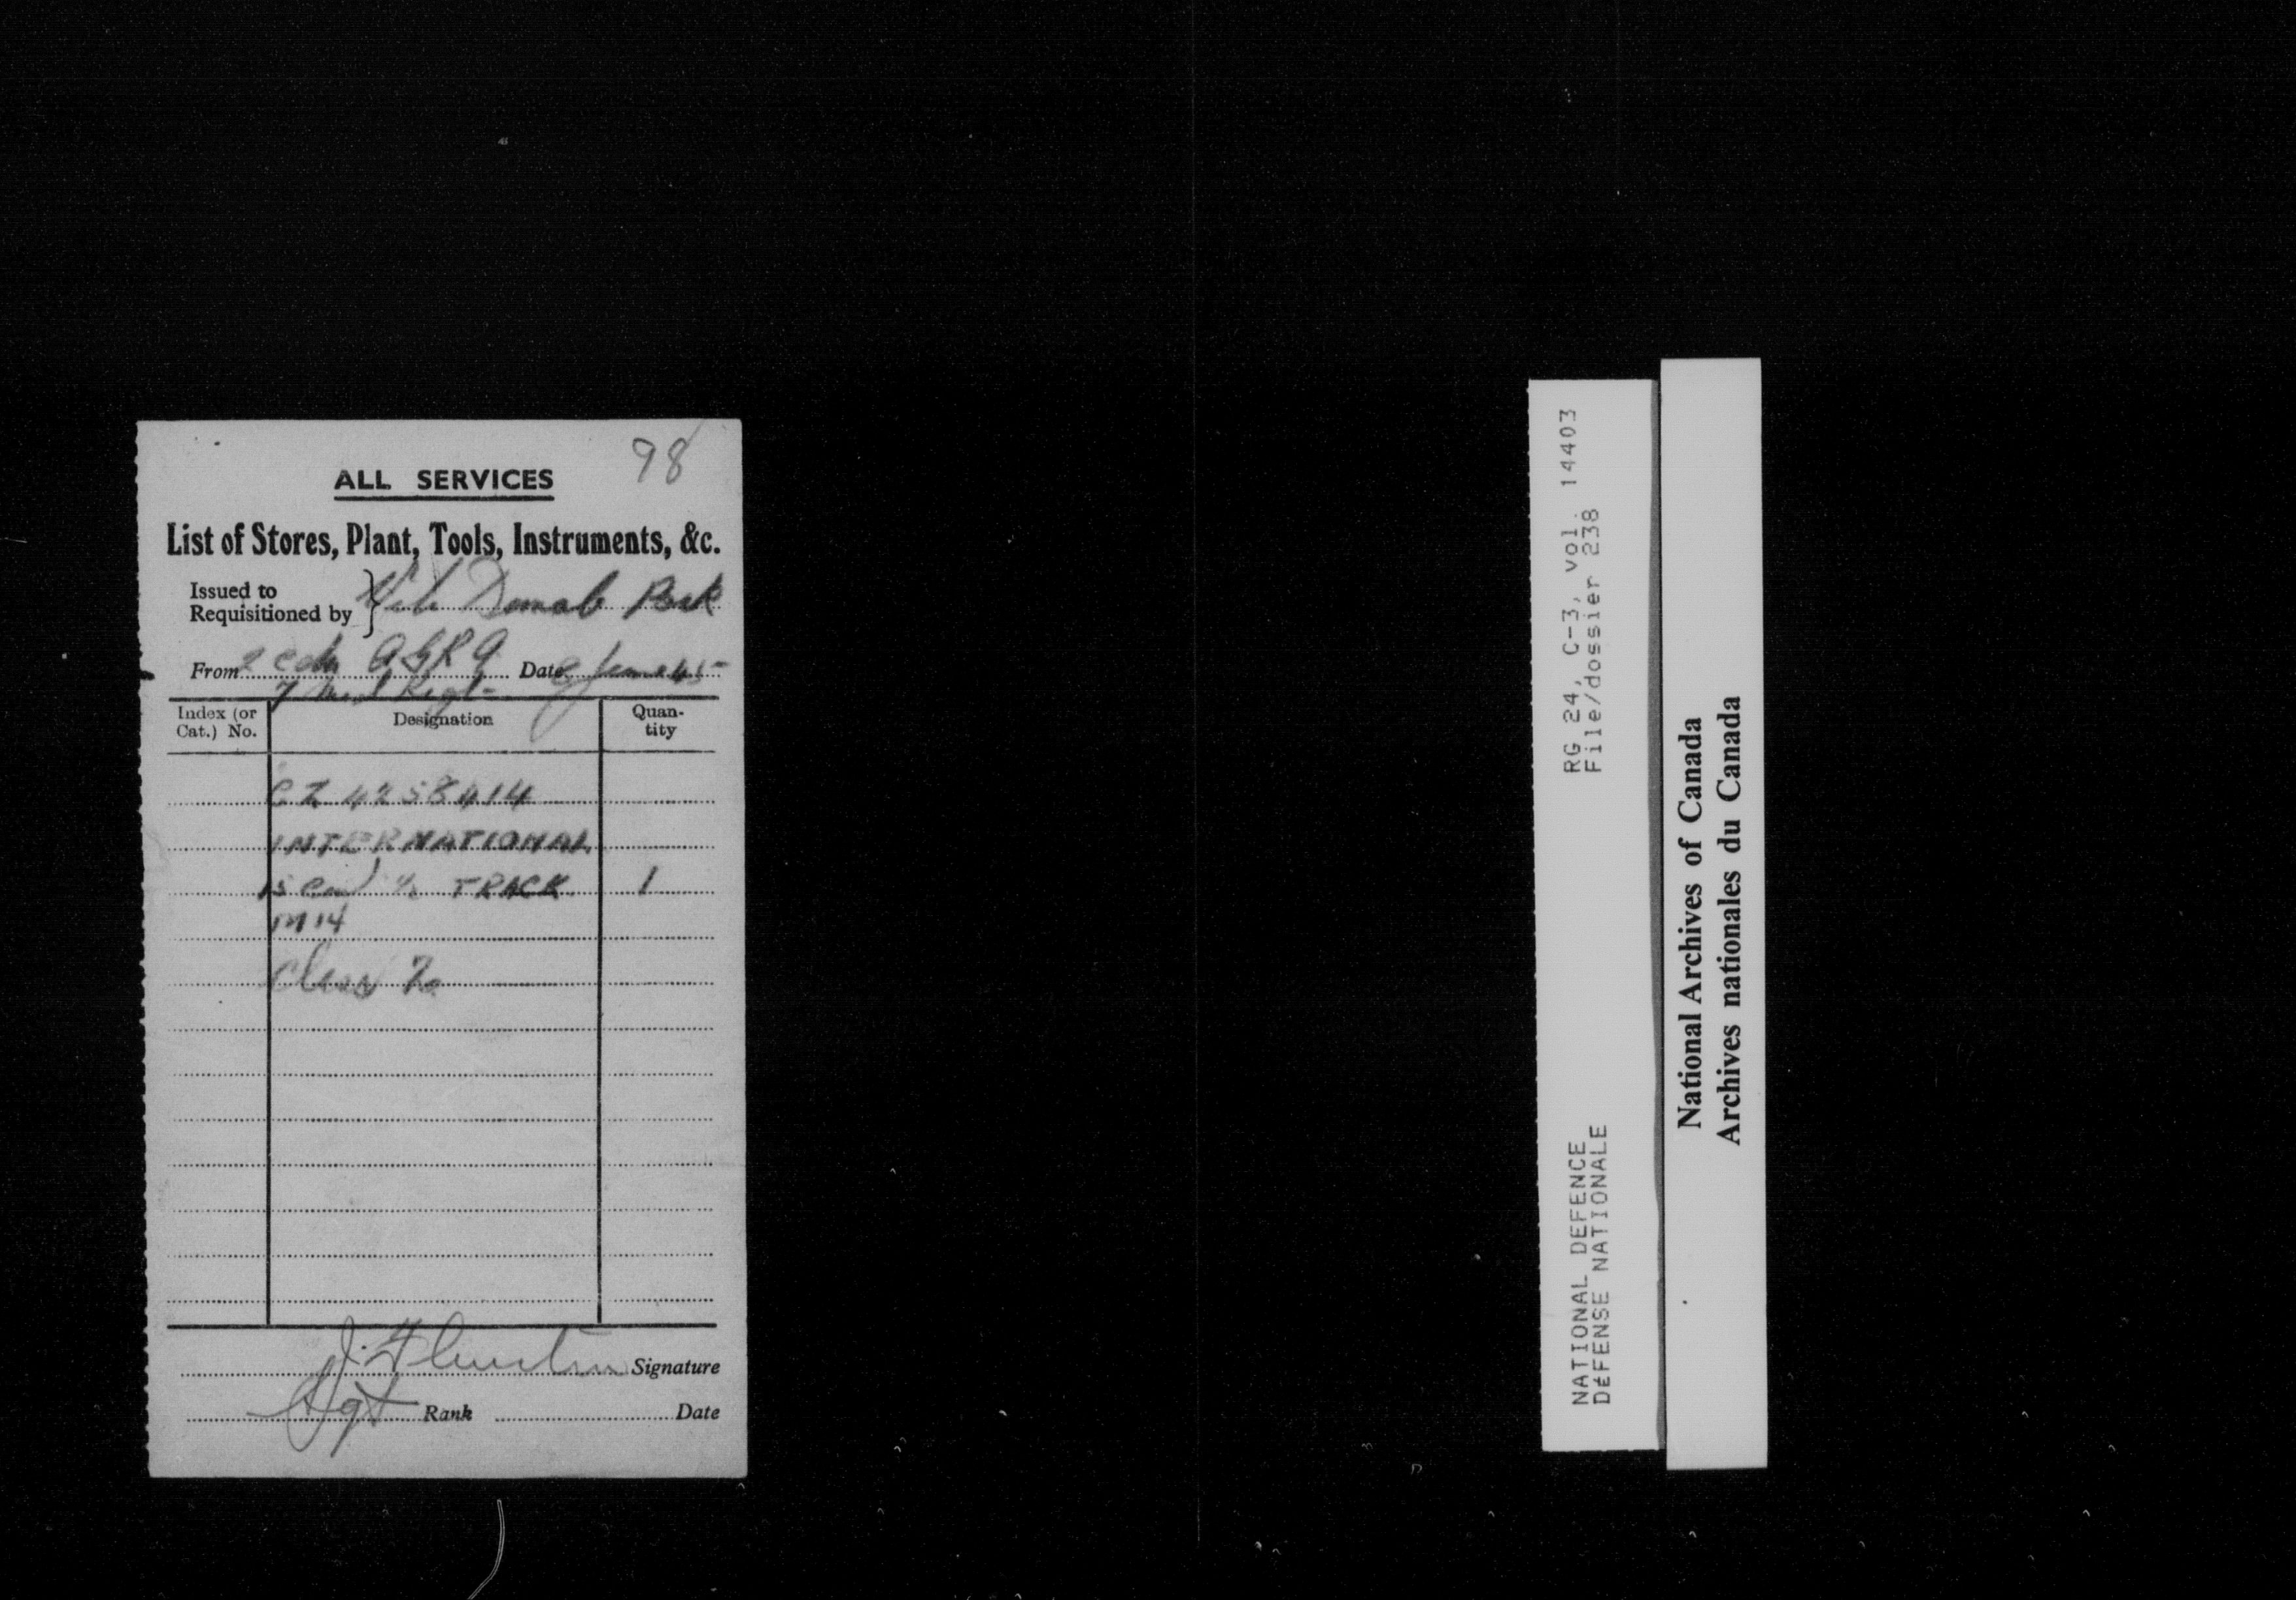 98
ALL SERVICES
List of Stores, Plant, Tools, Instruments, &c.
Issued to
Requisitioned by } Park
From 2 Cdn AGRA Date June 45
7 Med Regt
Index (or Cat.) No. Designation Quantity
CZ 4258414
INTERNATIONAL
15 cwt ½ TRACK 1
M 14
Class
J. Signature
Sgt Rank Date
RG 24, C-3, vol. 14403
File/dossier 238
NATIONAL DEFENCE
DÉFENSE NATIONALE
National Archives of Canada
Archives nationales du Canada